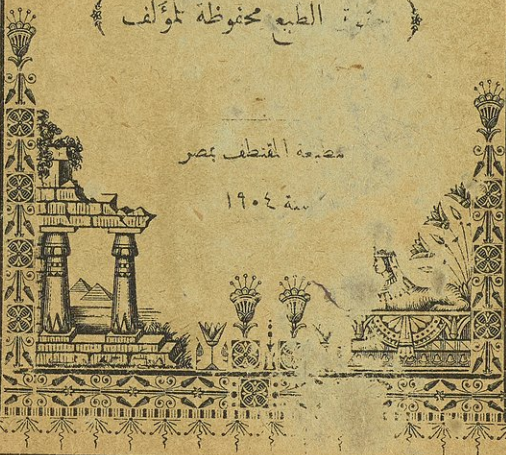 حقوق الطبع محفوظة للمؤلف
مطبعة المقتطف بمصر
سنة ١٩٠٤